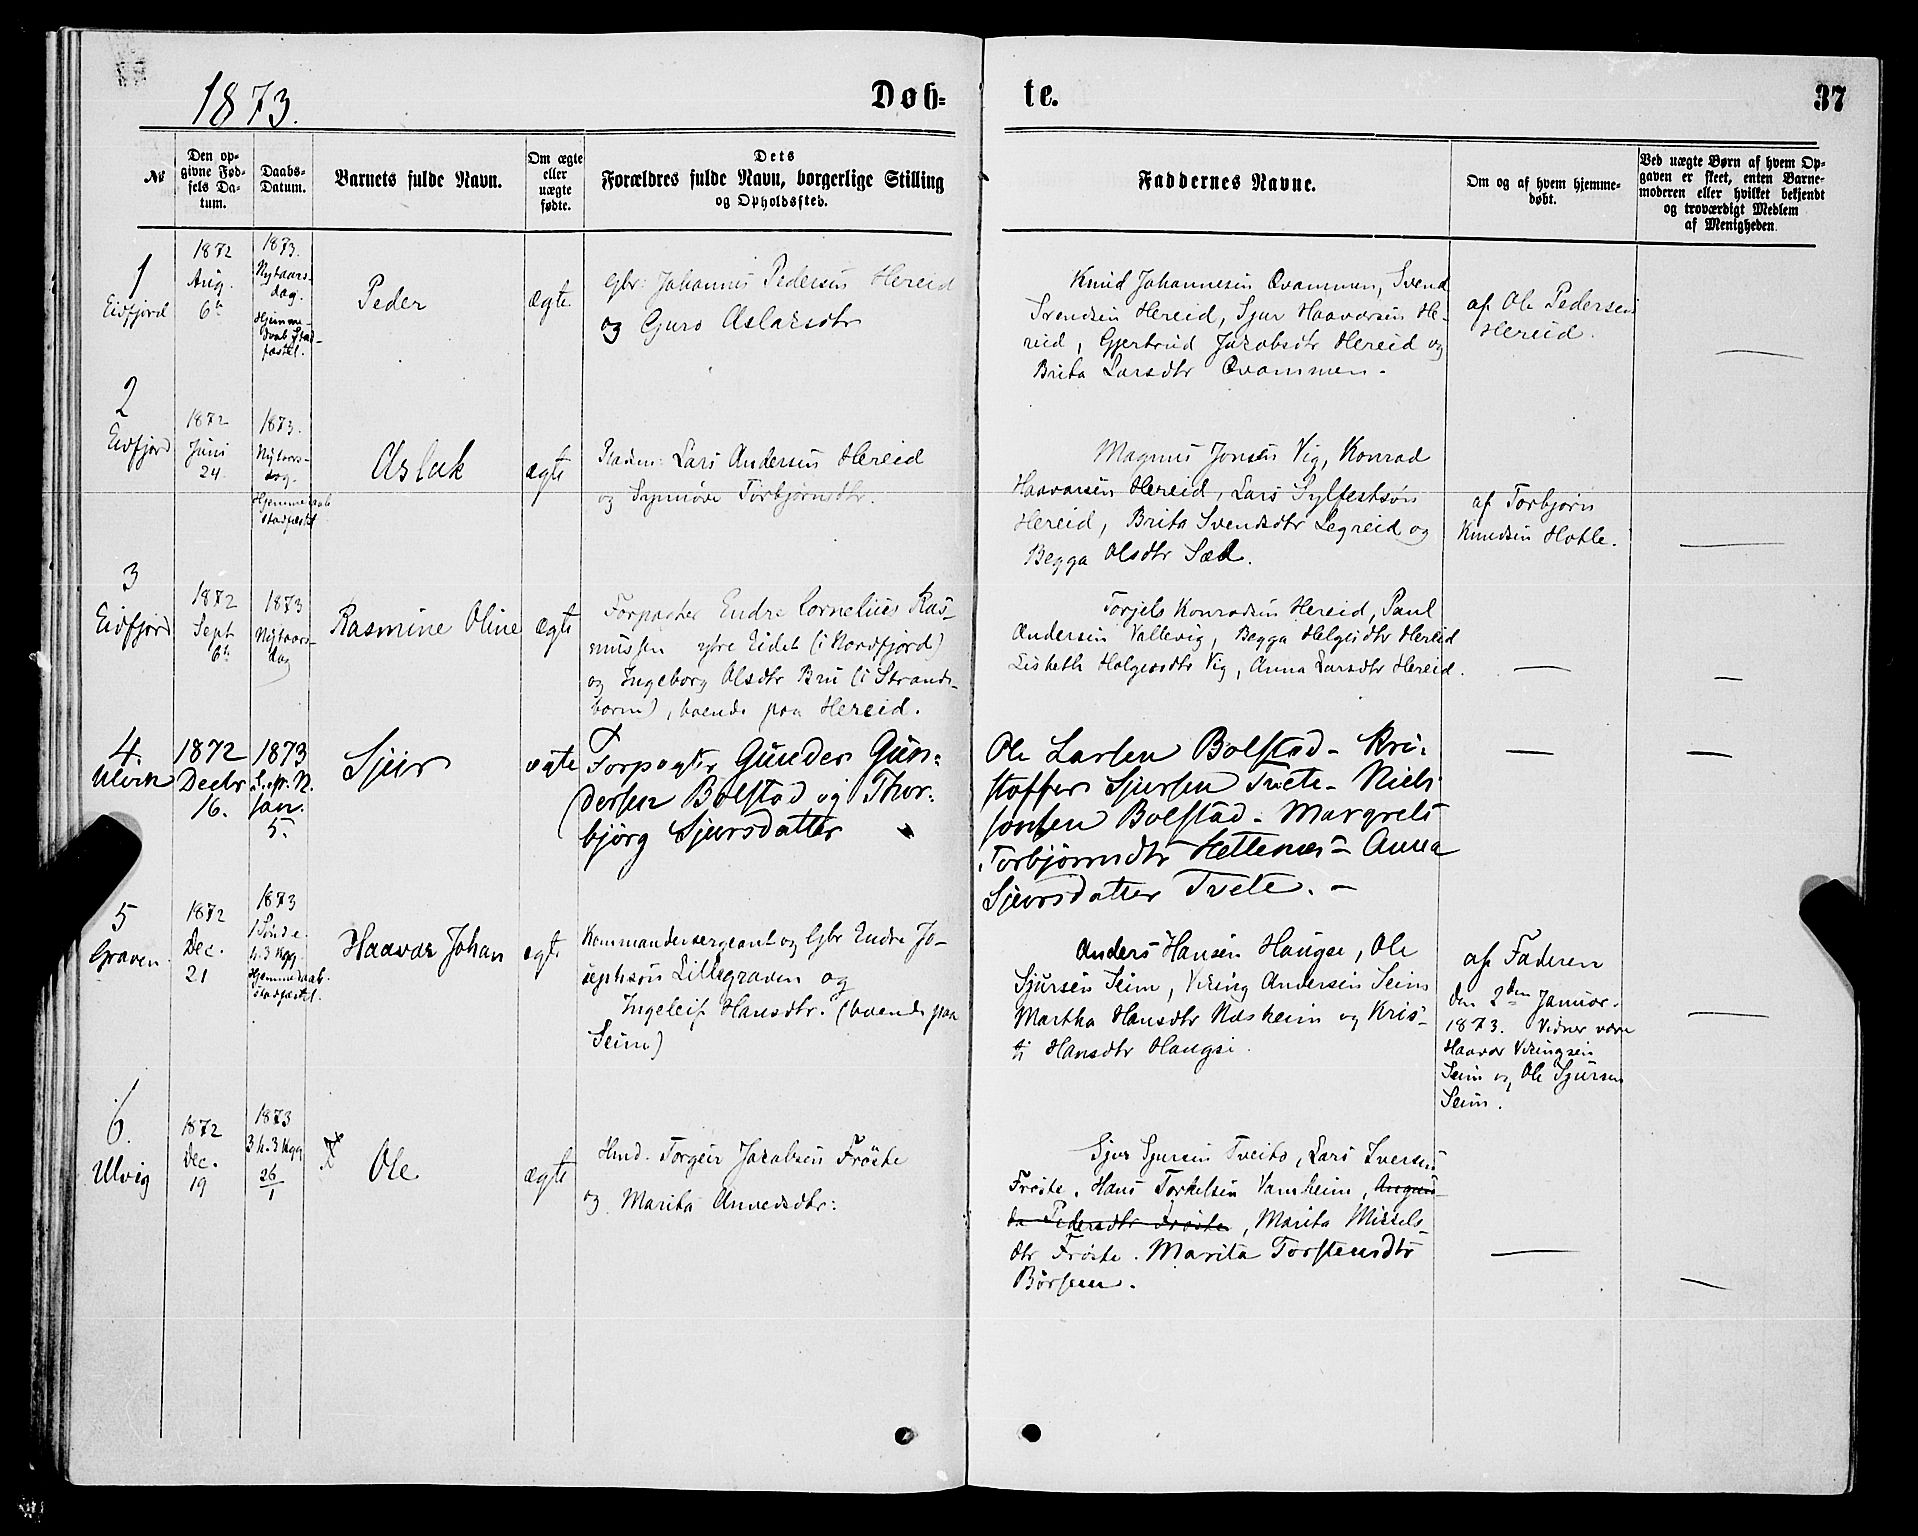 1873.
Døb-
te.
37
№
Den op-
givne Fød-
sels Da-
tum.
Daabs-
Datum.
Barnets fulde Navn.
Om ægte
eller
uægte
fødte.
Dets
Forældres fulde Navn, borgerlige Stilling
og Opholdssted.
Faddernes Navne.
Om og af hvem hjemme-
døbt.
Ved uægte Børn af hvem Op-
gaven er skeet, enten Barne-
moderen eller hvilket bekjendt
og troværdigt Medlem
af Menigheden.
1
Eidfjord
1872
Aug.
6te
1873.
Nytaars-
dag.
Hjemme-
daab Stad-
fæstet.
Peder
Ægte
Gbr: Johannes Pedersen Hereid
og Guro Aslaksdtr
Knud Johannesen Qvammen, Svend
Svendsen Hereid, Sjur Haavarsen He-
reid, Gjertrud Jacobsdtr Hereid og
Brita Larsdtr Qvammen.
af Ole Pedersen
Hereid.
2
Eidfjord
1872
Juni
24.
1873.
Nytaars-
dag.
Hjemmedaab
stadfæstet
Aslak
ægte
Lars Andersen Hereid
og Synnøve Torbjørnsdtr.
Magnus Jonsen Vig, Konrad
Haavarsen Hereid, Lars Sylfestsøn
Hereid, Brita Svendsdtr Legreid og
Begga Olsdtr Sæd.
af Torbjørn
Knudsen Hotle.
3
Eidfjord
1872
Sept
6te
1873
Nytaars-
dag
Rasmine Oline
Ægte
Forpagter Endre Cornelius Ras-
mussen ytre Eidet (i Nordfjord)
og Ingeborg Olsdtr Bru (i Strande-
barm), boende paa Hereid.
Torjels Konradsen Hereid, Paul
Andersen Vallevig, Begga Helgesdtr Hereid
Lisbeth Holgersdtr Vig, Anna Larsdtr Hereid.
4.
Ulvik
1872
Decbr
16.
1873
S. e. N.
Jan.
5.
Sjur
ægte
Forpagter Gunder Gun-
dersen Bolstad og Thor-
björg Sjursdatter
Ole Larsen Bolstad - Kri-
stoffer Sjursen Tvete - Niels
Jonsen Bolstad - Margrete
Torbjörnsdtr Hettenæs - Anna
Sjursdatter Tvete. -
5
Graven.
1872
Dec.
21
1873
1 Sønd e.
h. 3 Kgg
Hjemmedaab
stadfæstet.
Haavar Johan
egte
Kommandersergeant og Gbr Endre Jo-
sephsøn Lillegraven og
Ingeleif Hansdtr. (boende paa
Seim)
Anders Hansen Haugse, Ole
Sjursen Seim, Viking Andersen Seim
Martha Hansdtr Næsheim og Kris-
ti Hansdtr Haugse.
af Faderen
den 2den Januar.
1873. Vidner vare
Haavar Vikingsen
Seim og Ole Sjursen
Seim.
6.
Ulvig
1872
Dec.
19
1873
3 h. 3 Kgg
26/1
Ole
ægte
Hmd. Torgeir Jacobsen Frøste
og Marita Anvedsdtr:
Sjur Sjursen Tveito, Lars Iversen
Frøste. Hans Torkelsen Vamheim, Augus-
ta Pedersdtr Frøste, Marita Mikkels-
dtr Frøste. Marita Torstensdtr
Børsem.